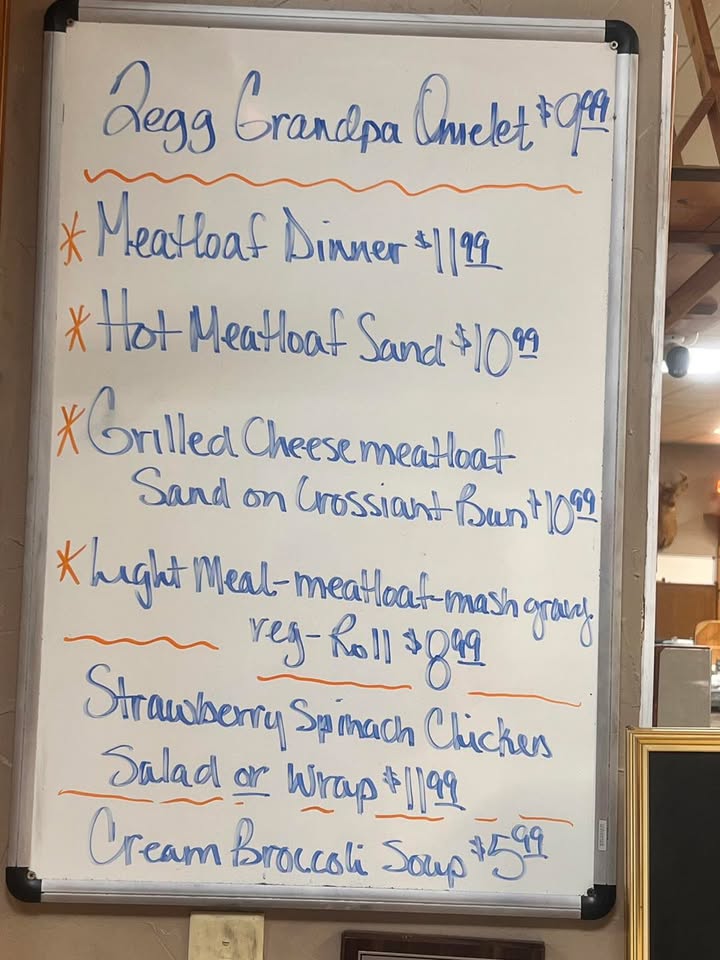 2egg Grandpa Omelet $9.99
* Meatloaf Dinner $11.99
* Hot Meatloaf Sand $10.99
* Grilled Cheese meatloaf
Sand on Crossiant Bun $10.99
* Light Meal-meatloaf-mash gravy
veg-Roll $8.99
Strawberry Spinach Chicken
Salad or Wrap $11.99
Cream Broccoli Soup $5.99